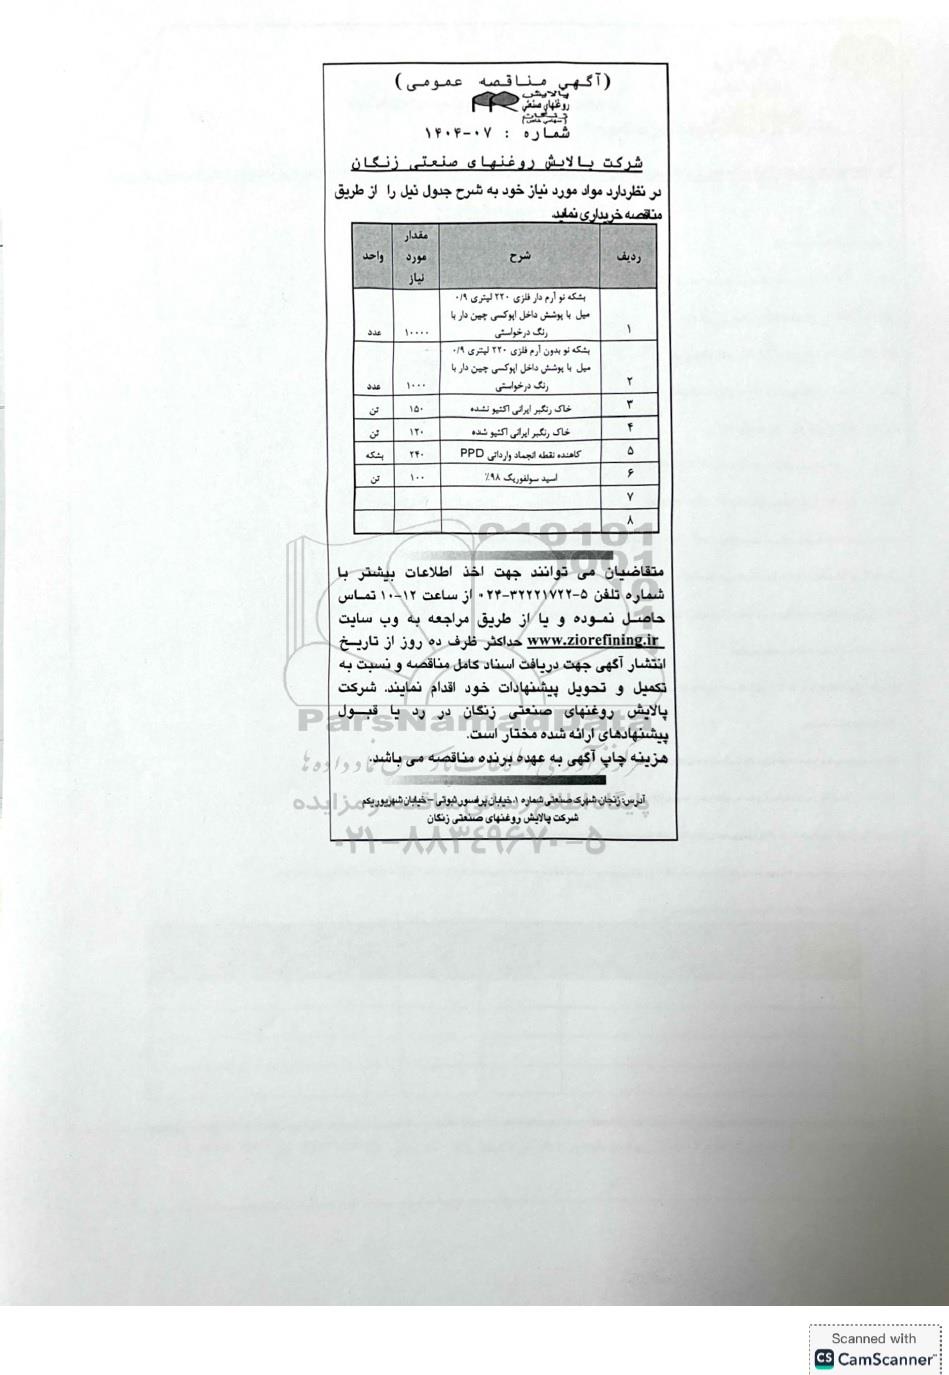 (آگهی مناقصه عمومی)
پالایش
روغنهای صنعتی
زنگان
(سهامی خاص)
شماره : ۰۷-۱۴۰۴
شرکت پالایش روغنهای صنعتی زنگان
در نظردارد مواد مورد نیاز خود به شرح جدول ذیل را از طریق
مناقصه خریداری نماید.
ردیف شرح مقدار مورد نیاز واحد
۱ بشکه نو آرم دار فلزی ۲۲۰ لیتری ۰/۹
میل با پوشش داخل اپوکسی چین دار با
رنگ درخواستی ۱۰۰۰۰ عدد
۲ بشکه نو بدون آرم فلزی ۲۲۰ لیتری ۰/۹
میل با پوشش داخل اپوکسی چین دار با
رنگ درخواستی ۱۰۰۰ عدد
۳ خاک رنگبر ایرانی اکتیو نشده ۱۵۰ تن
۴ خاک رنگبر ایرانی اکتیو شده ۱۲۰ تن
۵ کاهنده نقطه انجماد وارداتی PPD ۲۴۰ بشکه
۶ اسید سولفوریک ۹۸٪ ۱۰۰ تن
۷
۸
متقاضیان می توانند جهت اخذ اطلاعات بیشتر با
شماره تلفن ۵-۳۲۲۲۱۷۲۲-۰۲۴ از ساعت ۱۲-۱۰ تماس
حاصل نموده و یا از طریق مراجعه به وب سایت
www.ziorefining.ir حداکثر ظرف ده روز از تاریخ
انتشار آگهی جهت دریافت اسناد کامل مناقصه و نسبت به
تکمیل و تحویل پیشنهادات خود اقدام نمایند. شرکت
پالایش روغنهای صنعتی زنگان در رد یا قبول
پیشنهادهای ارائه شده مختار است.
هزینه چاپ آگهی به عهده برنده مناقصه می باشد.
آدرس: زنجان شهرک صنعتی شماره ۱، خیابان پرفسور ثبوتی - خیابان شهریور یکم
شرکت پالایش روغنهای صنعتی زنگان
ParsNamadData
پایگاه اطلاع رسانی مناقصه و مزایده
۰۲۱-۸۸۳۴۹۶۷۰-۵
Scanned with
CS CamScanner